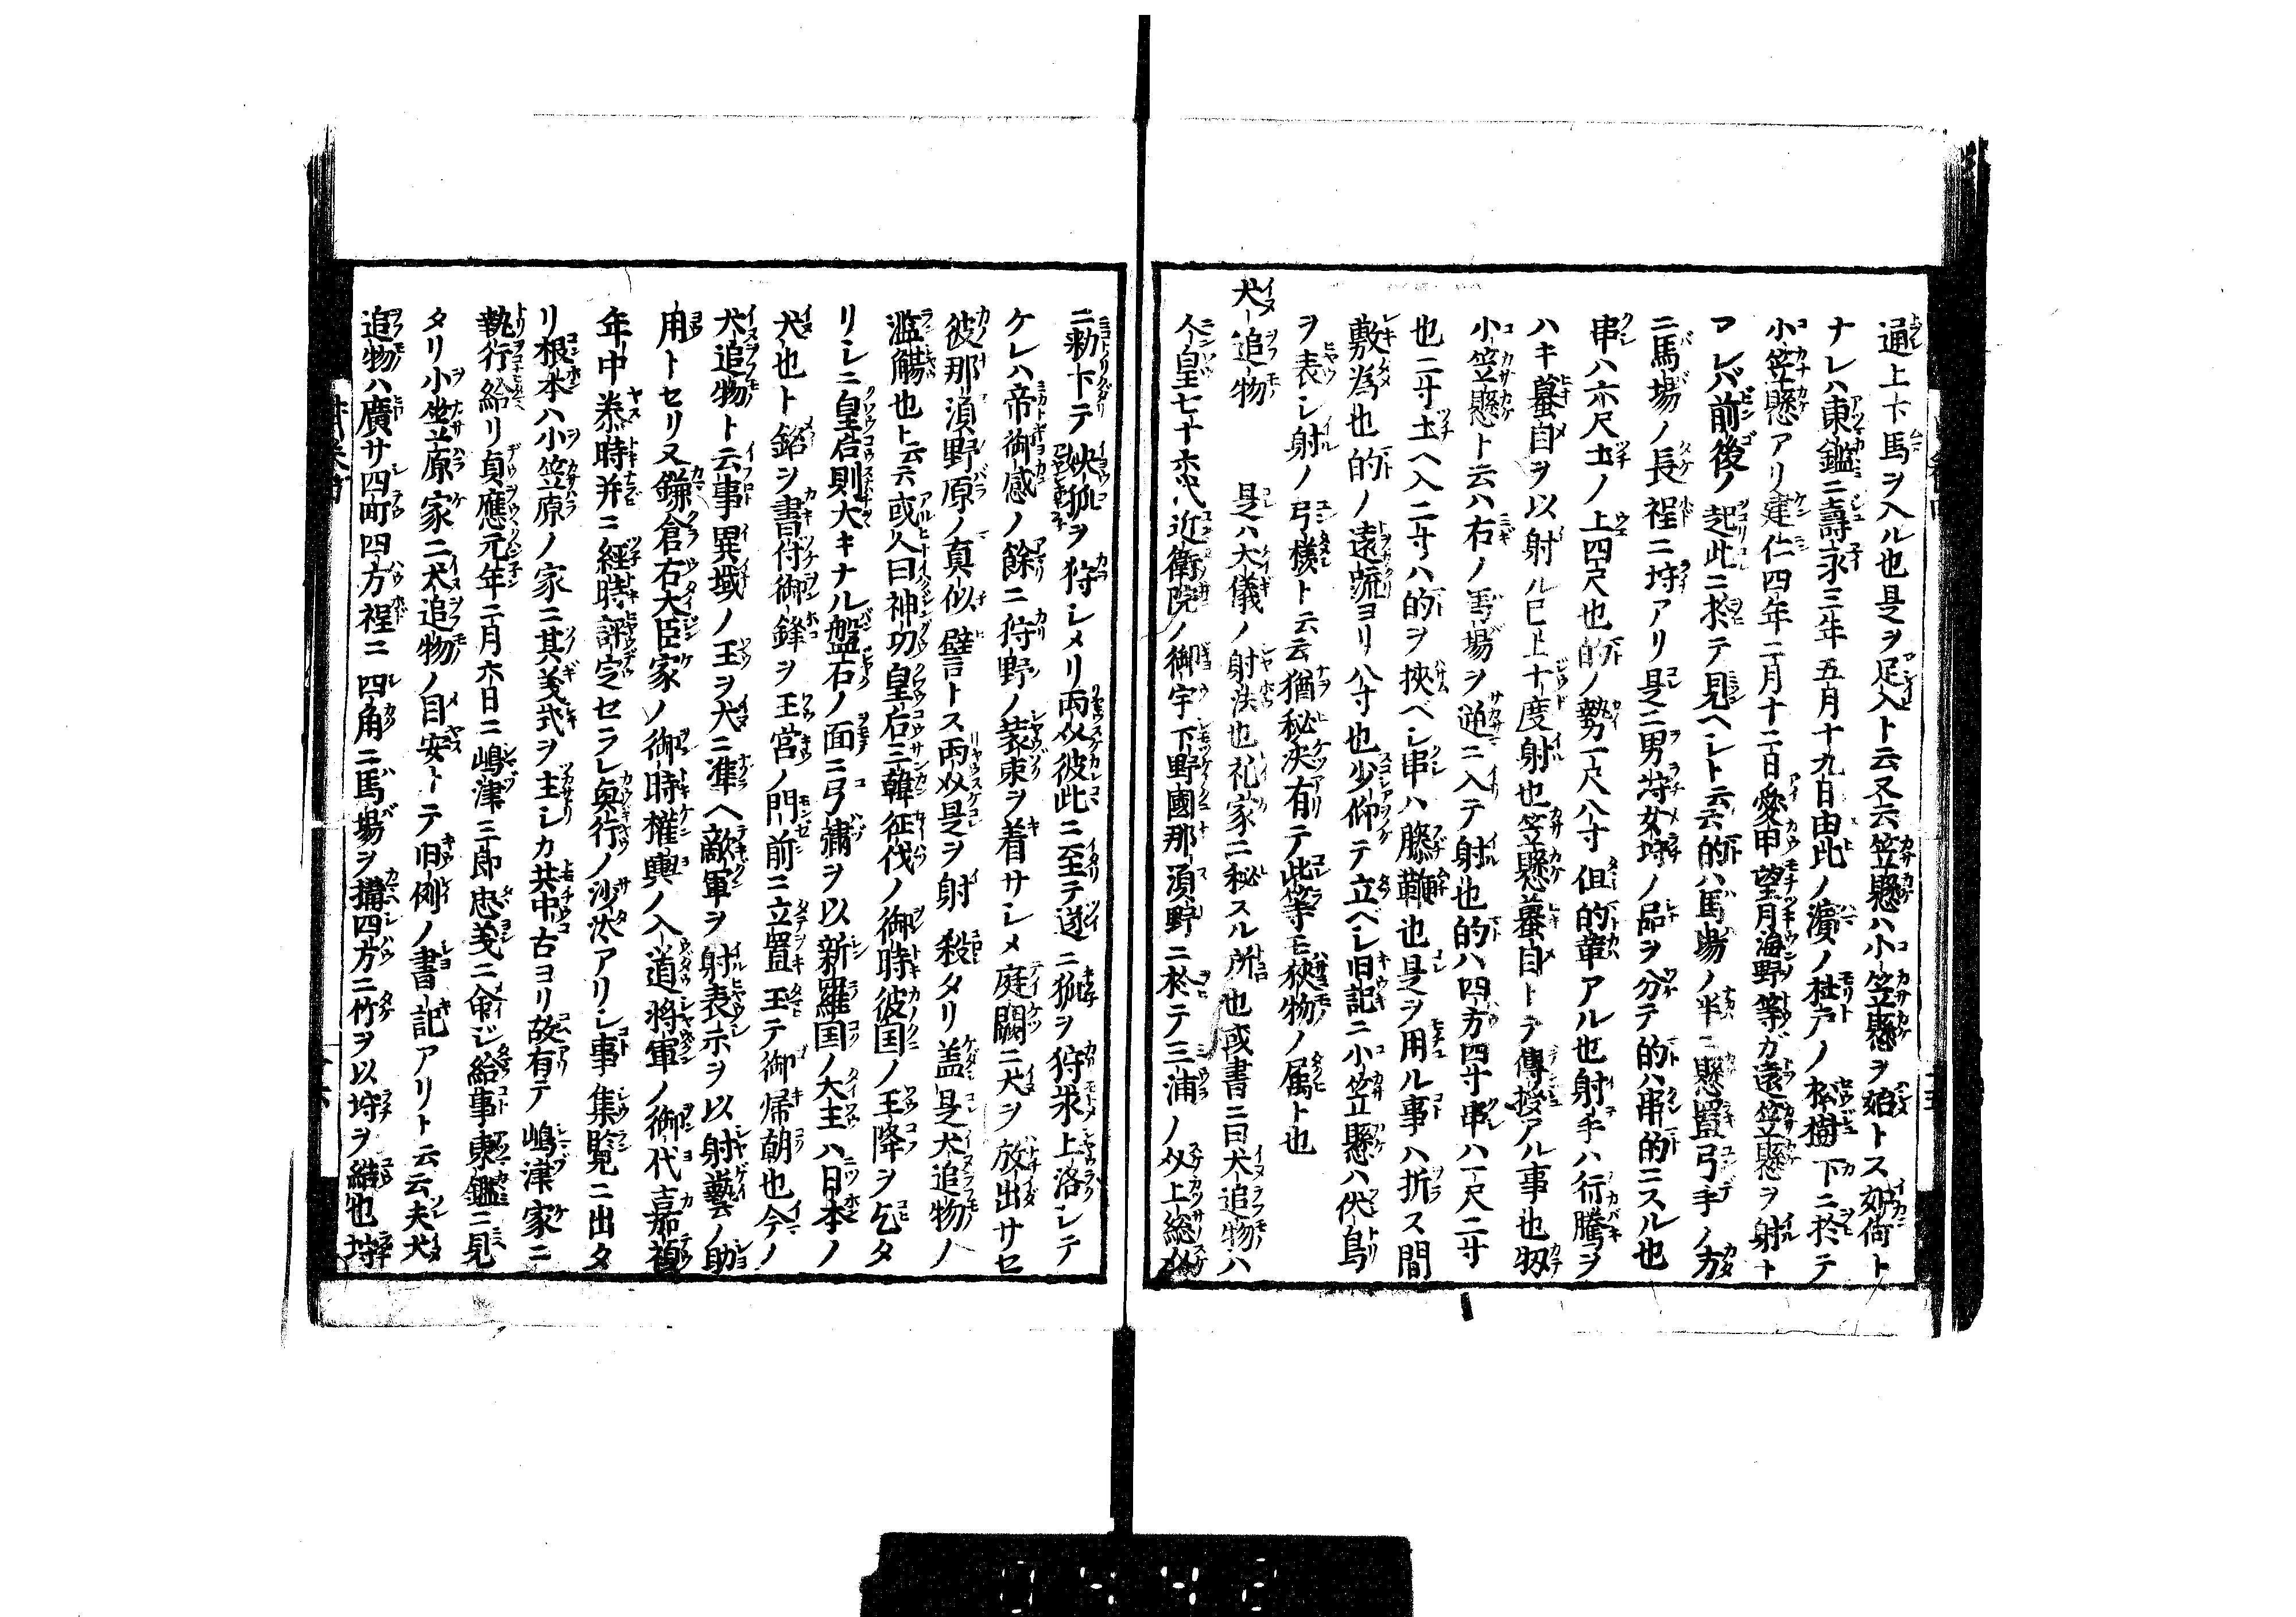 通上下馬ヲ入ル也是ヲ足入ト云又云笠懸ハ小笠懸ヲ始トス如何ト
ナレハ東鑑ニ壽永三年五月十九日由此ノ濱ノ社戸ノ松樹下ニ於テ
小笠懸アリ建仁四年二月十二日愛甲望月海野等ガ遠笠懸ヲ射ト
アレバ前後ノ起此ニ於テ見ヘシト云云的ハ馬場ノ半ニ懸置弓手ノ方
ニ馬場ノ長程ニ埒アリ是ニ男埒女埒ノ品ヲ分テ的ハ串的ニスル也
串ハ六尺土ノ上四尺也的ノ勢一尺八寸但的章アル也射手ハ行騰ヲ
ハキ蟇目ヲ以射ル已上十度射也笠懸蟇目トテ傳授アル事也扨
小笠懸ト云ハ右ノ馬場ヲ逆ニ入テ射也的ハ四方四寸串ハ一尺二寸
也二寸土ヘ入二寸ハ的ヲ挾ベシ串ハ藤鞭也是ヲ用ル事ハ折ス間
敷為也的ノ遠䟽ヨリ八寸也少仰テ立ベシ旧記ニ小笠懸ハ伏鳥
ヲ表シ射ノ弓様ト云云猶秘决有テ此等モ挾物ノ属ト也
犬追物　是ハ大儀ノ射法也礼家ニ秘スル所也或書ニ曰犬追物ハ
人皇七十六代近衛院ノ御宇下野國那須野ニ於テ三浦ノ介上総介
ニ勅下テ妖狐ヲ狩シメリ両介彼此ニ至テ遂ニ狐ヲ狩求上洛シテ
ケレハ帝御感ノ餘ニ狩野ノ装束ヲ着サシメ庭闕ニ犬ヲ放出サセ
彼那須野原ノ真似譬トス両介是ヲ射殺タリ盖是犬追物ノ
濫觴也ト云云或人曰神功皇后三韓征伐ノ御時彼国ノ王降ヲ乞タ
リシニ皇后則大キナル盤石ノ面ニ弓弰ヲ以新羅国ノ大主ハ日本ノ
犬也ト銘ヲ書付御鋒ヲ王宮ノ門前ニ立置玉テ御帰朝也今ノ
犬追物ト云事異域ノ王ヲ犬ニ准ヘ敵軍ヲ射表示ヲ以射藝ノ助
用トセリ又鎌倉右大臣家ノ御時權輿ノ入道将軍ノ御代嘉禎
年中泰時并ニ経時評定セラレ興行ノ沙汰アリシ事集覧ニ出タ
リ根本ハ小笠原ノ家ニ其義式ヲ主シカ共中古ヨリ故有テ嶋津家ニ
執行給リ貞應元年二月六日ニ嶋津三郎忠義ニ命ジ給事東鑑ニ見
タリ小笠原家ニ犬追物ノ目安トテ旧例ノ書記アリト云云夫犬
追物ハ廣サ四町四方程ニ四角ニ馬場ヲ搆四方ニ竹ヲ以埒ヲ結也埒